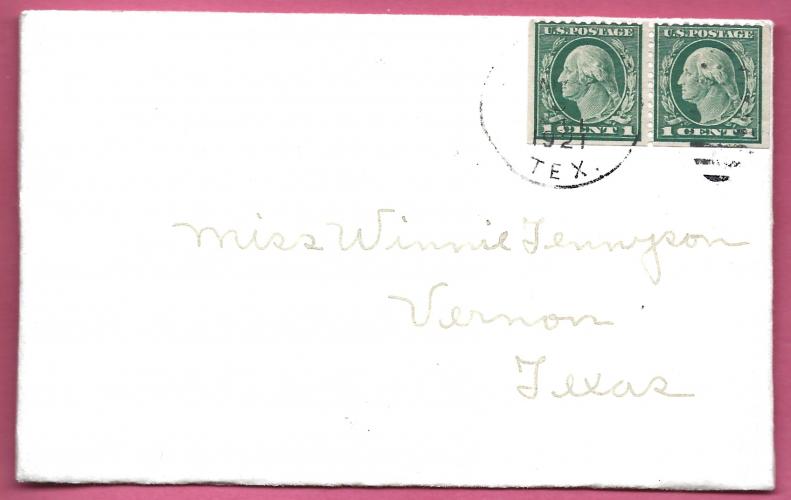 U.S. POSTAGE U.S. POSTAGE
1 CENT 1 1 CENT 1
1921
TEX.
Miss Winnie Tennyson
Vernon
Texas